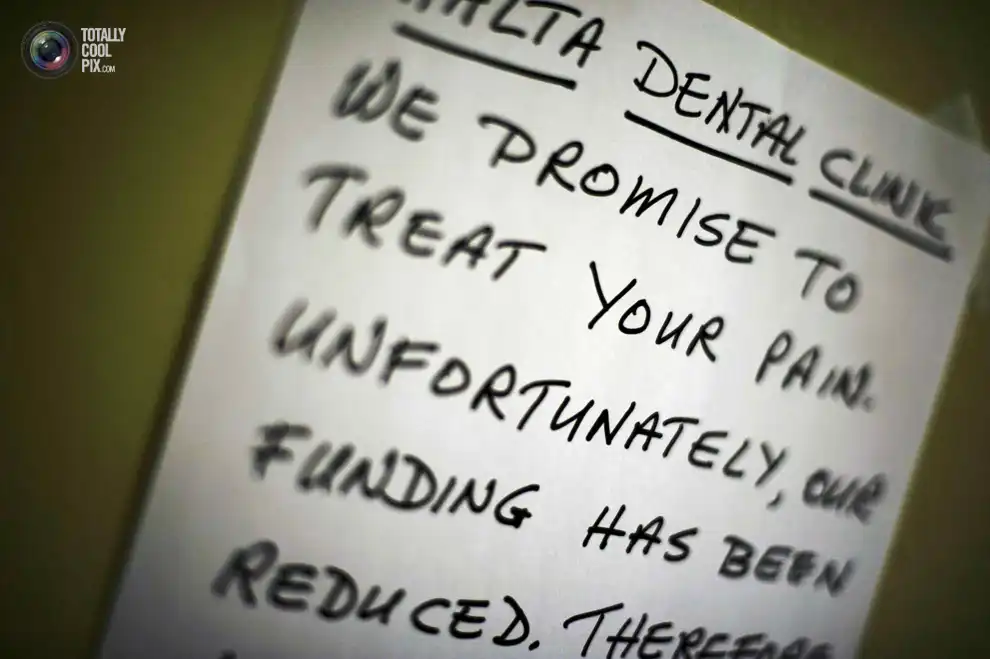 TOTALLY
COOL
PIX.COM
DENTAL CLINIC
WE PROMISE TO
TREAT YOUR PAIN.
UNFORTUNATELY, OUR
FUNDING HAS BEEN
REDUCED. THEREFORE